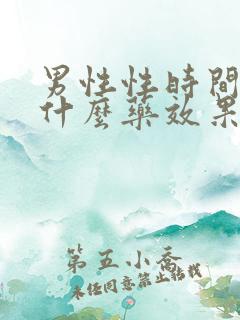 男性性時間
什麼藥效果
第五小喬
未经同意禁止转载